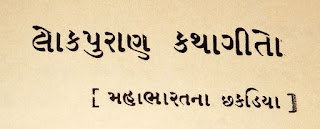 લોકપુરાણ કથાગીતો
[ મહાભારતના છકડિયા ]